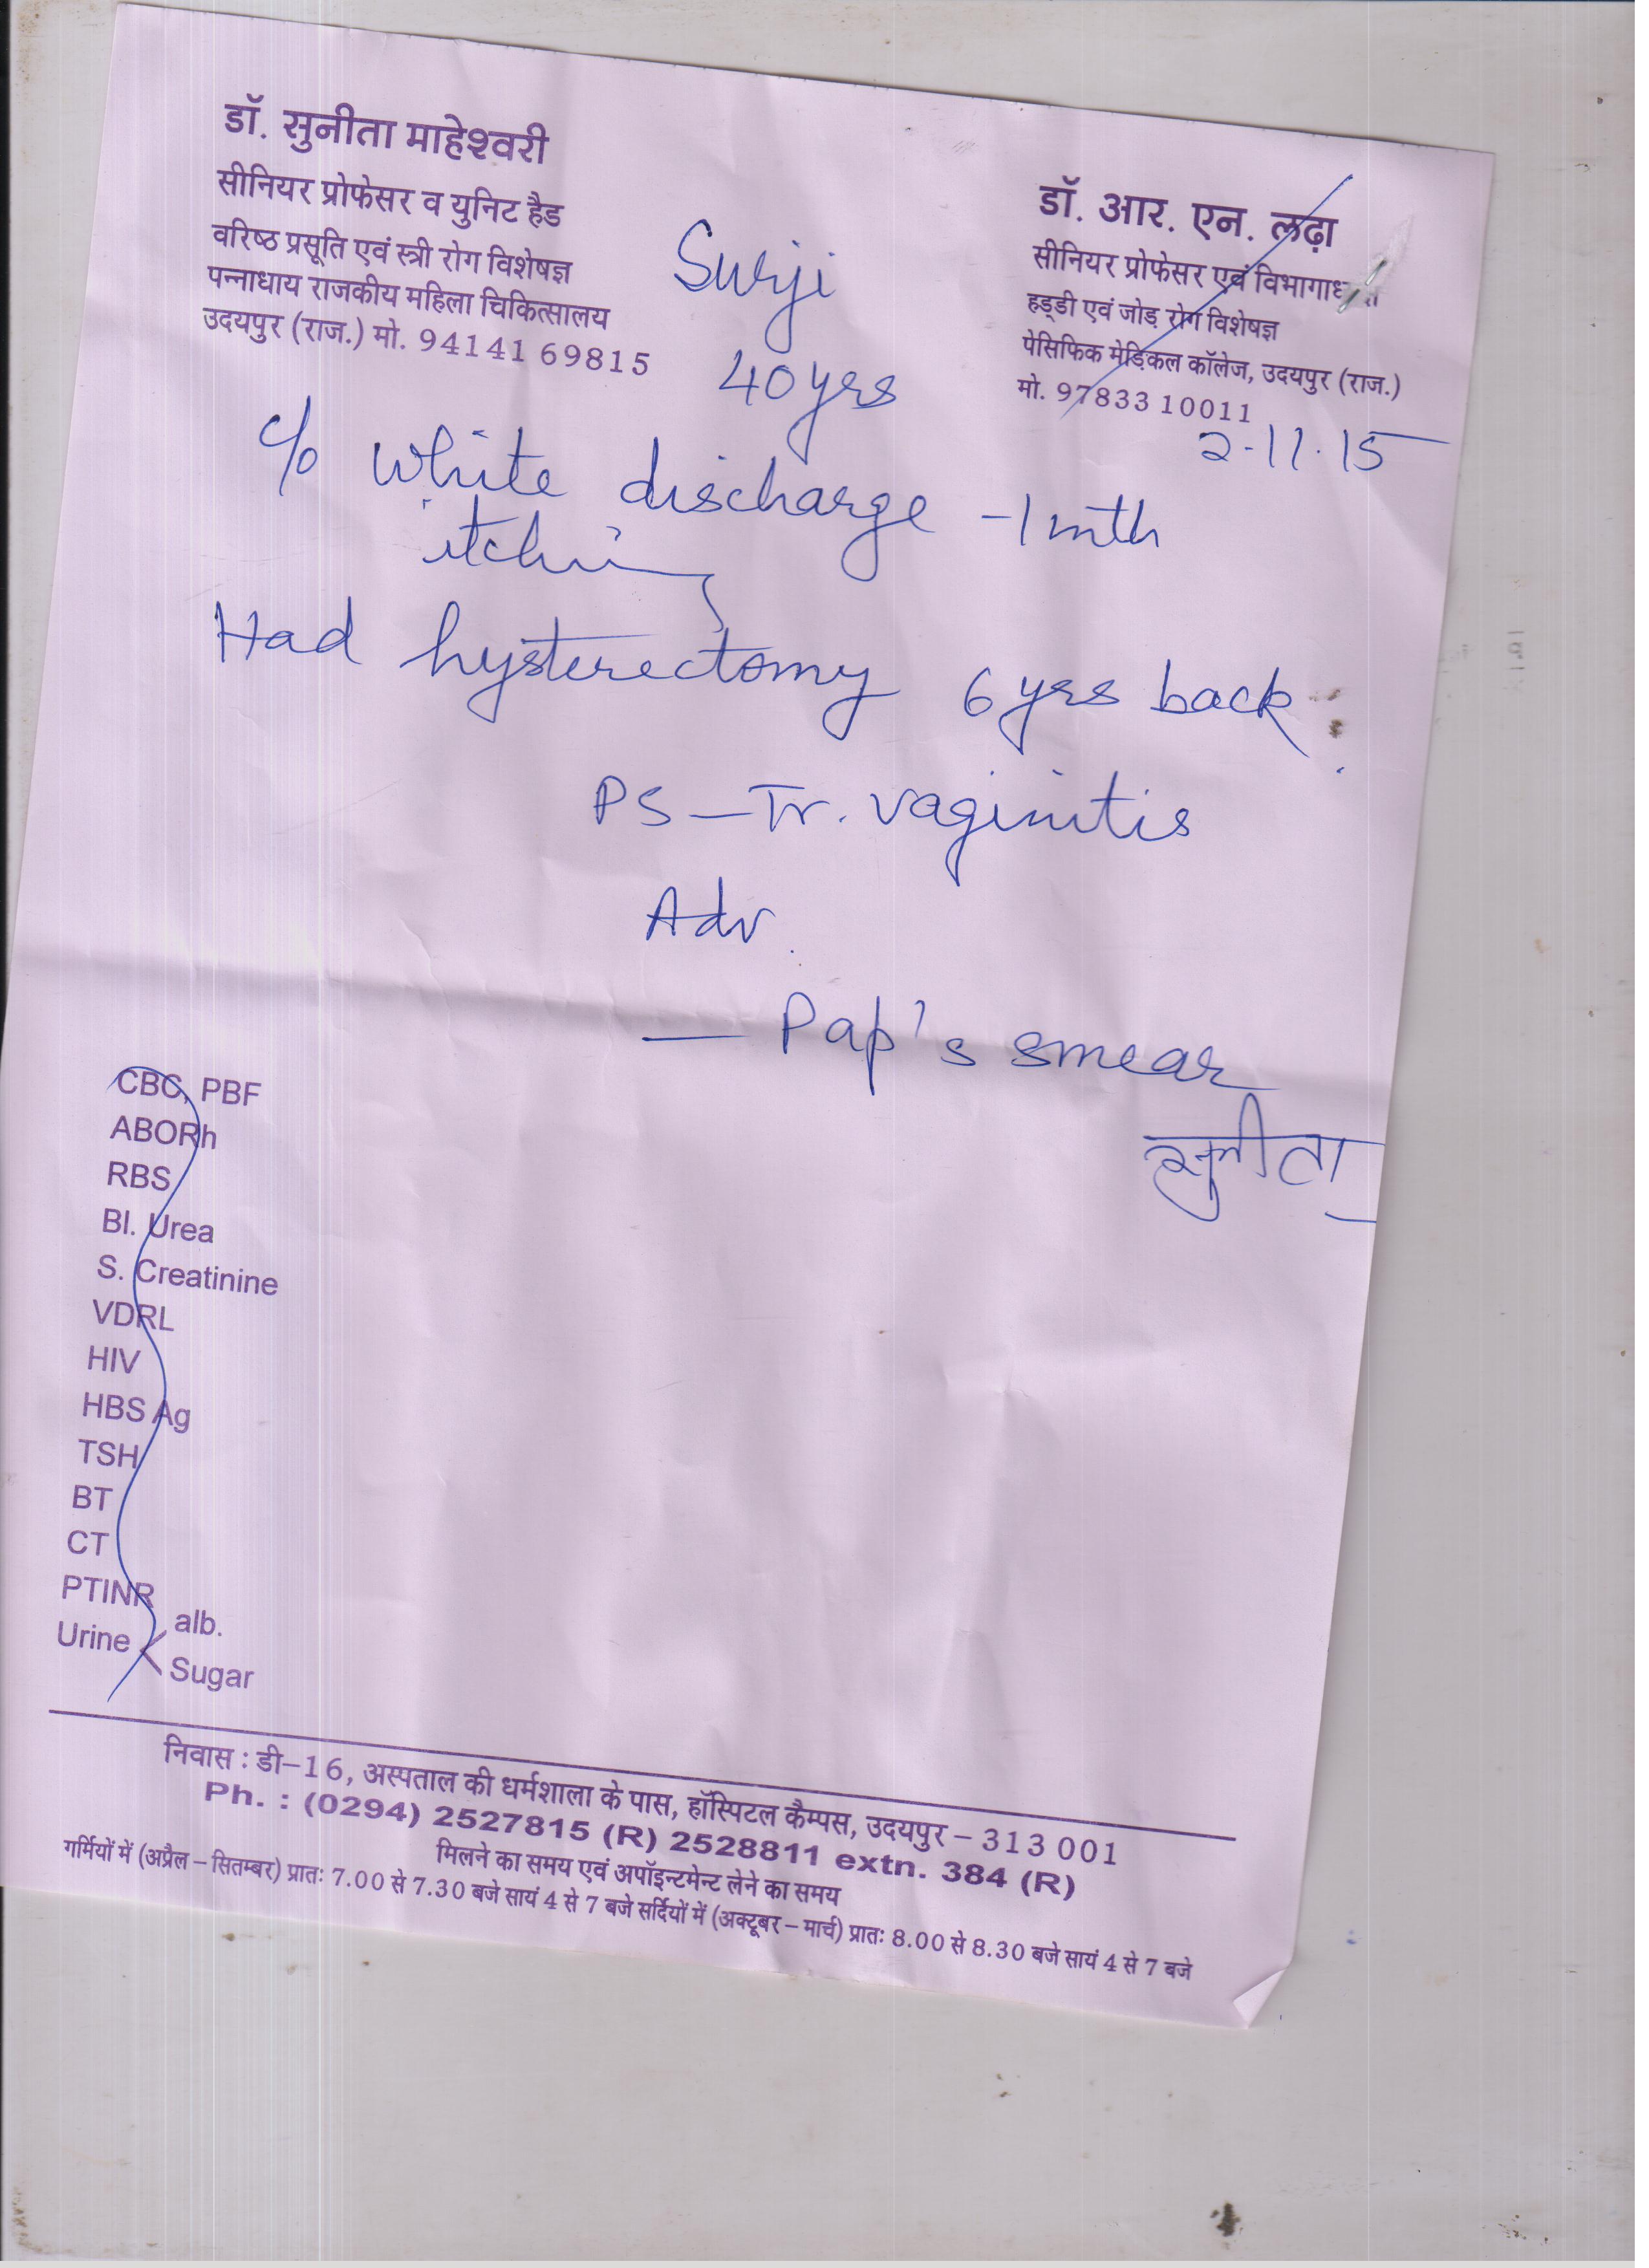 डॉ. सुनीता माहेश्वरी
सीनियर प्रोफेसर व युनिट हैड
वरिष्ठ प्रसूति एवं स्त्री रोग विशेषज्ञ
पन्नाधाय राजकीय महिला चिकित्सालय
उदयपुर (राज.) मो. 94141 69815
डॉ. आर. एन. लढ़ा
सीनियर प्रोफेसर एवं
हड्डी एवं जोड़ रोग विशेषज्ञ
पेसिफिक मेडिकल कॉलेज, उदयपुर (राज.)
मो. 97833 10011
Surji
40 yrs
2.11.15
c/o white discharge - 1 mth
itching
Had hysterectomy 6 yrs back
PS - Tr. vaginitis
Adv.
- Pap's smear
सुनीता
CBC, PBF
ABORh
RBS
Bl. Urea
S. Creatinine
VDRL
HIV
HBS Ag
TSH
BT
CT
PTINR
Urine < alb.
Sugar
निवास : डी-16, अस्पताल की धर्मशाला के पास, हॉस्पिटल कैम्पस, उदयपुर - 313 001
Ph. : (0294) 2527815 (R) 2528811 extn. 384 (R)
मिलने का समय एवं अपॉइन्टमेन्ट लेने का समय
गर्मियों में (अप्रैल - सितम्बर) प्रातः 7.00 से 7.30 बजे सायं 4 से 7 बजे सर्दियों में (अक्टूबर - मार्च) प्रातः 8.00 से 8.30 बजे सायं 4 से 7 बजे